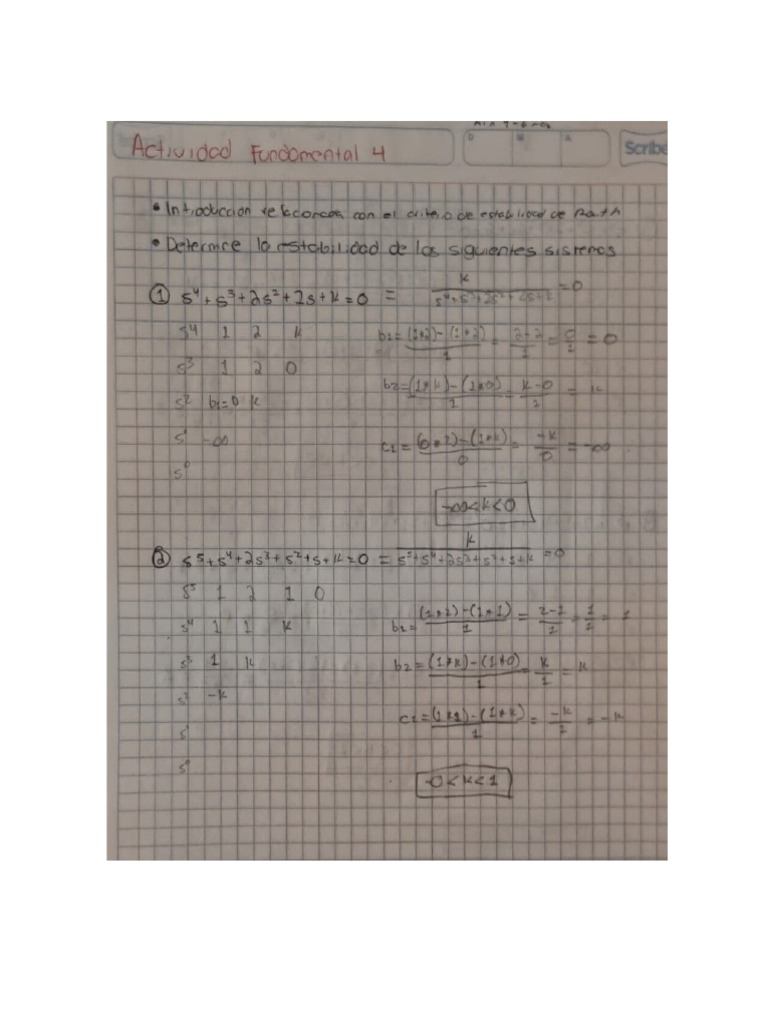 Actividad Fundamental 4
D M A
Scribe
• Introduccion relacionada con el criterio de estabilidad de Routh
• Determine la estabilidad de los siguientes sistemas
① s⁴+s³+2s²+2s+k=0 = k/(s⁴+s³+2s²+2s+k) =0
s⁴ 1 2 k b1=((1*2)-(1*2))/1 = (2-2)/1 = 0/1 = 0
s³ 1 2 0
s² b1=0 k b2=((1*k)-(1*0))/1 = (k-0)/1 = k
s¹ -∞ c1=((0*2)-(1*k))/0 = -k/0 = -∞
s⁰
-∞<k<0
② s⁵+s⁴+2s³+s²+s+k=0 = k/(s⁵+s⁴+2s³+s²+s+k) =0
s⁵ 1 2 1 0
s⁴ 1 1 k b1=((1*2)-(1*1))/1 = (2-1)/1 = 1/1 = 1
s³ 1 k b2=((1*k)-(1*0))/1 = k/1 = k
s² -k c1=((1*1)-(1*k))/1 = -k/1 = -k
s¹
s⁰
-0<k<1